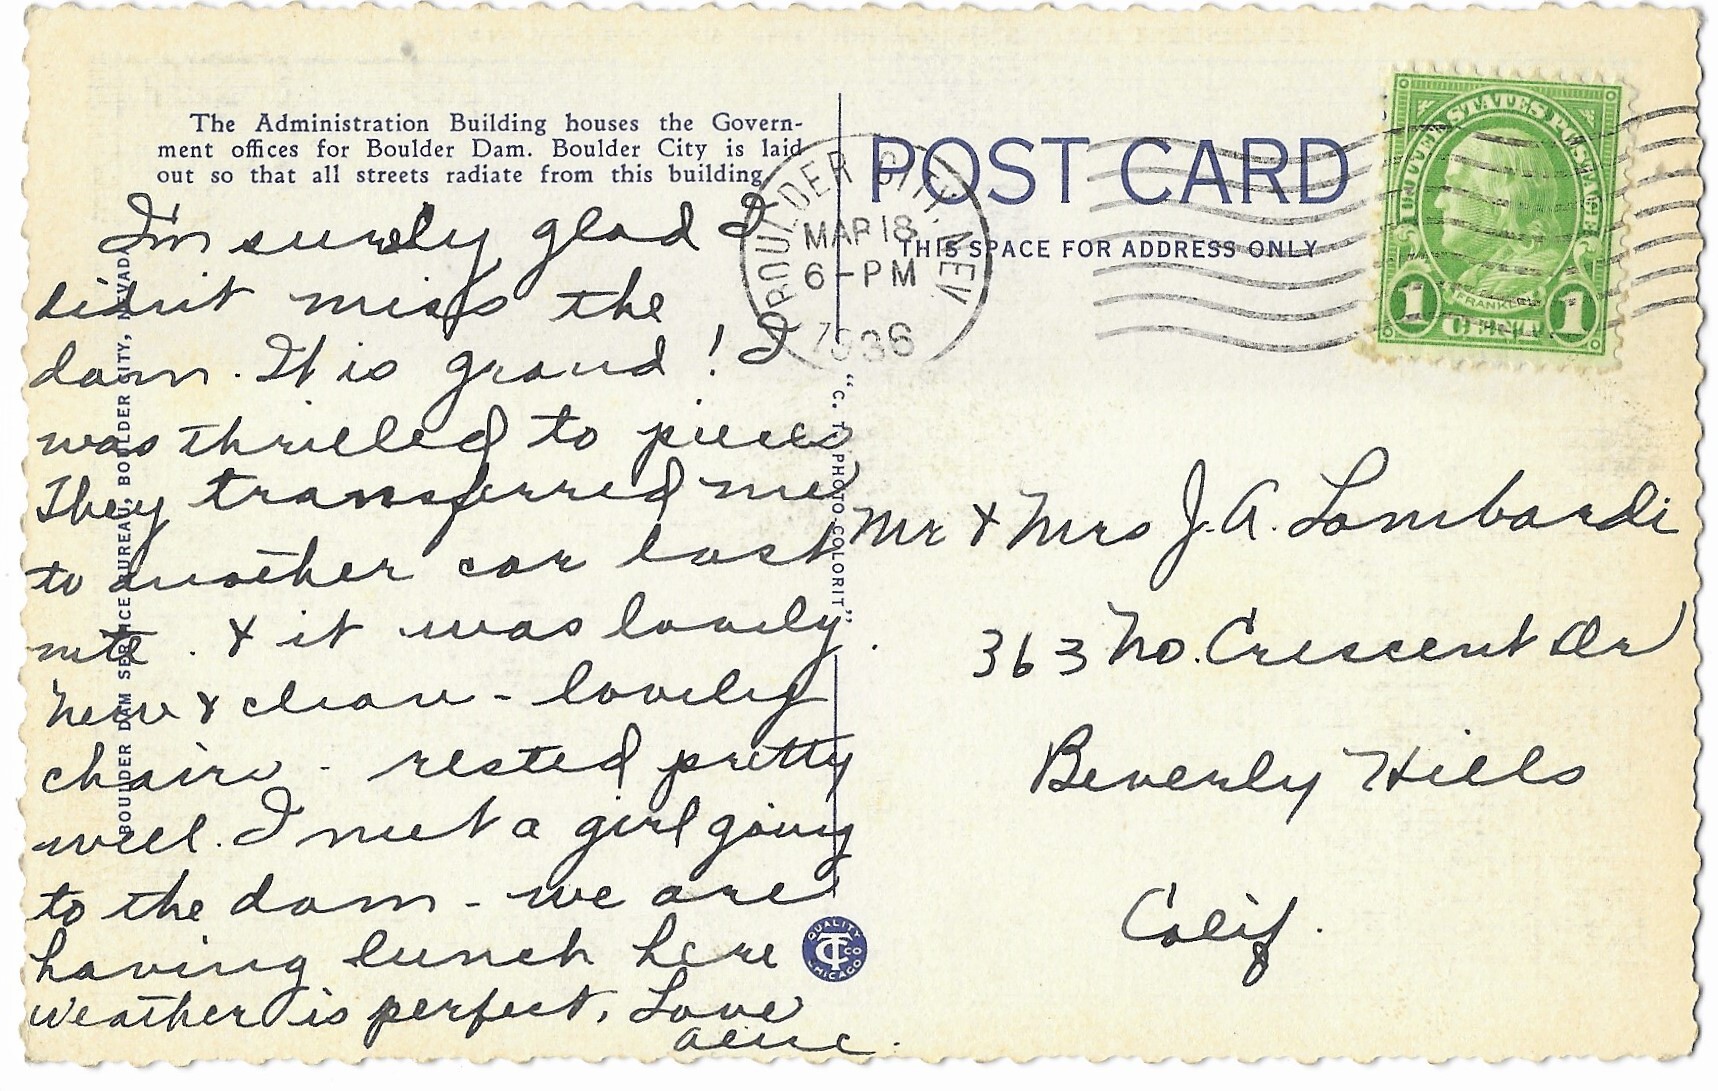 The Administration Building houses the Govern-
ment offices for Boulder Dam. Boulder City is laid
out so that all streets radiate from this building.
I'm surely glad I
didn't miss the
dam. It is grand! I
was thrilled to pieces
They transferred me
to another car last
nite. & it was lovely.
New & clean - lovely
chairs - rested pretty
well. I met a girl going
to the dam - we are
having lunch here
weather is perfect. Love
BOULDER DAM SERVICE BUREAU, BOULDER CITY, NEVADA
"C. T. PHOTO COLORIT"
QUALITY
CT CO
CHICAGO
POST CARD
THIS SPACE FOR ADDRESS ONLY
BOULDER CITY, NEV
MAR 18
6-PM
1936
UNITED STATES POSTAGE
FRANKLIN
1 CENT 1
Mr & Mrs J. A. Lombardi
363 No. Crescent Dr
Beverly Hills
Calif.